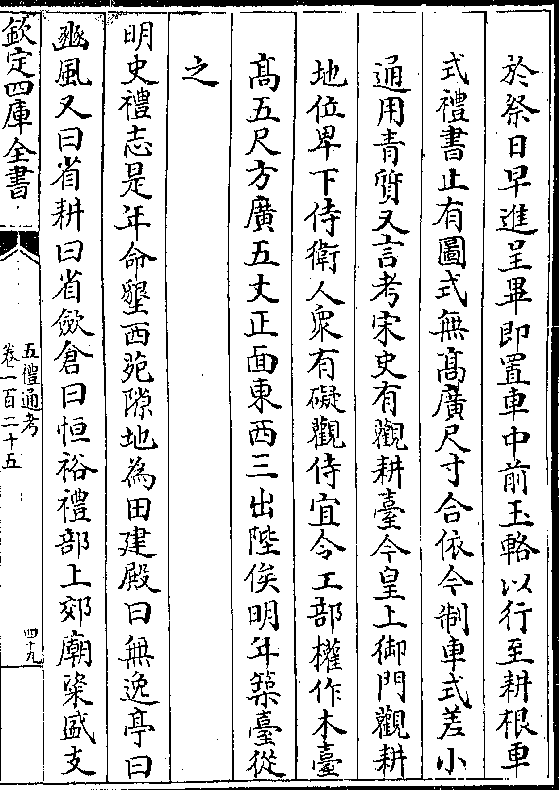 於祭日早進呈畢即置車中前玉輅以行至耕根車
式禮書止有圖式無高廣尺寸合依今制車式差小
通用青質又言考宋史有觀耕臺今皇上御門觀耕
地位卑下侍衛人衆有礙觀侍宜令工部權作木臺
高五尺方廣五丈正面東西三出陛俟明年築臺從
之
明史禮志是年命墾西苑隙地為田建殿曰無逸亭曰
豳風又曰省耕曰省斂倉曰恒裕禮部上郊廟粢盛支
欽定四庫全書
五禮通考
卷一百二十五
四十九